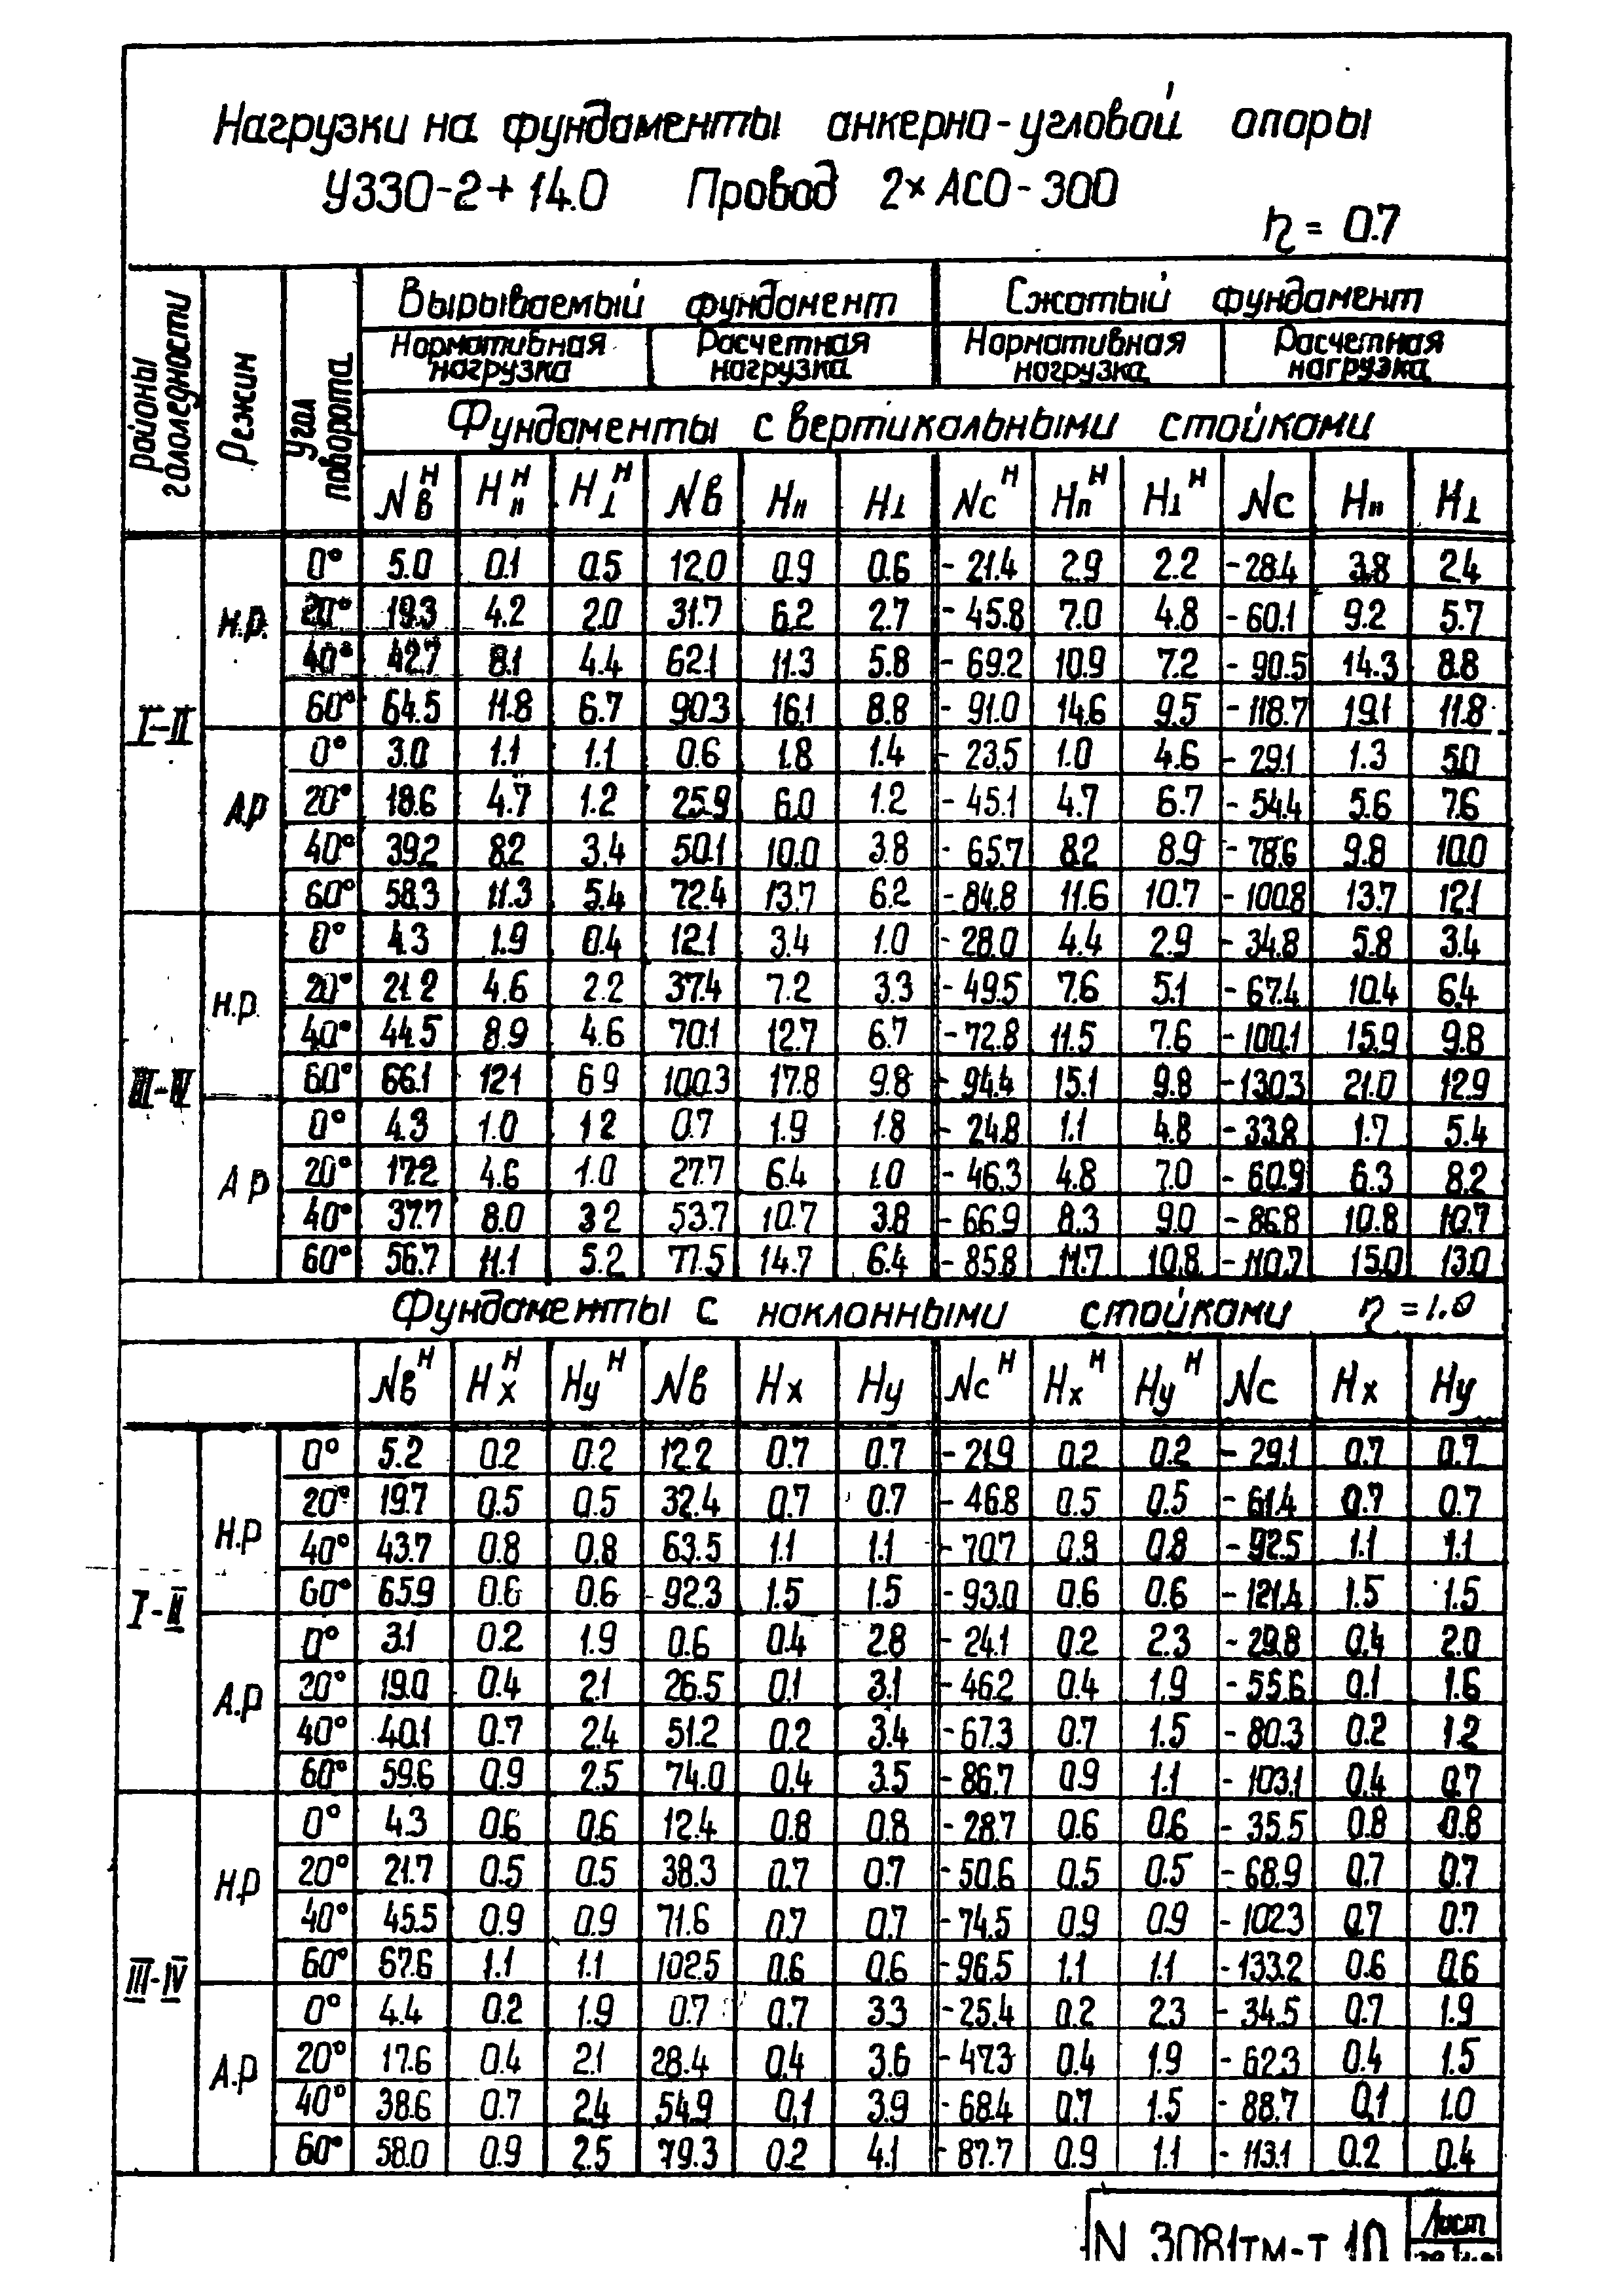 Нагрузки на фундаменты анкерно-угловой опоры
У330-2+14.0 Провод 2×АСО-300
η = 0.7
районы гололедности Режим Угол поворота Вырываемый фундамент Сжатый фундамент
Нормативная нагрузка Расчетная нагрузка Нормативная нагрузка Расчетная нагрузка
Фундаменты с вертикальными стойками
Nв^н Hп^н H⊥^н Nв Hп H⊥ Nс^н Hп^н H⊥^н Nс Hп H⊥
I-II Н.Р. 0° 5.0 0.1 0.5 12.0 0.9 0.6 -21.4 2.9 2.2 -28.4 3.8 2.4
20° 19.3 4.2 2.0 31.7 6.2 2.7 -45.8 7.0 4.8 -60.1 9.2 5.7
40° 42.7 8.1 4.4 62.1 11.3 5.8 -69.2 10.9 7.2 -90.5 14.3 8.8
60° 64.5 11.8 6.7 90.3 16.1 8.8 -91.0 14.6 9.5 -118.7 19.1 11.8
А.Р 0° 3.0 1.1 1.1 0.6 1.8 1.4 -23.5 1.0 4.6 -29.1 1.3 5.0
20° 18.6 4.7 1.2 25.9 6.0 1.2 -45.1 4.7 6.7 -54.4 5.6 7.6
40° 39.2 8.2 3.4 50.1 10.0 3.8 -65.7 8.2 8.9 -78.6 9.8 10.0
60° 58.3 11.3 5.4 72.4 13.7 6.2 -84.8 11.6 10.7 -100.8 13.7 12.1
III-IV Н.Р. 0° 4.3 1.9 0.4 12.1 3.4 1.0 -28.0 4.4 2.9 -34.8 5.8 3.4
20° 21.2 4.6 2.2 37.4 7.2 3.3 -49.5 7.6 5.1 -67.4 10.4 6.4
40° 44.5 8.9 4.6 70.1 12.7 6.7 -72.8 11.5 7.6 -100.1 15.9 9.8
60° 66.1 12.1 6.9 100.3 17.8 9.8 -94.4 15.1 9.8 -130.3 21.0 12.9
А Р 0° 4.3 1.0 1.2 0.7 1.9 1.8 -24.8 1.1 4.8 -33.8 1.7 5.4
20° 17.2 4.6 1.0 27.7 6.4 1.0 -46.3 4.8 7.0 -60.9 6.3 8.2
40° 37.7 8.0 3.2 53.7 10.7 3.8 -66.9 8.3 9.0 -86.8 10.8 10.7
60° 56.7 11.1 5.2 77.5 14.7 6.4 -85.8 11.7 10.8 -110.7 15.0 13.0
Фундаменты с наклонными стойками η = 1.0
Nв^н Hх^н Hу^н Nв Hх Hу Nс^н Hх^н Hу^н Nс Hх Hу
I-II Н.Р 0° 5.2 0.2 0.2 12.2 0.7 0.7 -21.9 0.2 0.2 -29.1 0.7 0.7
20° 19.7 0.5 0.5 32.4 0.7 0.7 -46.8 0.5 0.5 -61.4 0.7 0.7
40° 43.7 0.8 0.8 63.5 1.1 1.1 -70.7 0.8 0.8 -92.5 1.1 1.1
60° 65.9 0.6 0.6 92.3 1.5 1.5 -93.0 0.6 0.6 -121.4 1.5 1.5
А.Р 0° 3.1 0.2 1.9 0.6 0.4 2.8 -24.1 0.2 2.3 -29.8 0.4 2.0
20° 19.0 0.4 2.1 26.5 0.1 3.1 -46.2 0.4 1.9 -55.6 0.1 1.6
40° 40.1 0.7 2.4 51.2 0.2 3.4 -67.3 0.7 1.5 -80.3 0.2 1.2
60° 59.6 0.9 2.5 74.0 0.4 3.5 -86.7 0.9 1.1 -103.1 0.4 0.7
III-IV Н.Р 0° 4.3 0.6 0.6 12.4 0.8 0.8 -28.7 0.6 0.6 -35.5 0.8 0.8
20° 21.7 0.5 0.5 38.3 0.7 0.7 -50.6 0.5 0.5 -68.9 0.7 0.7
40° 45.5 0.9 0.9 71.6 0.7 0.7 -74.5 0.9 0.9 -102.3 0.7 0.7
60° 67.6 1.1 1.1 102.5 0.6 0.6 -96.5 1.1 1.1 -133.2 0.6 0.6
А.Р 0° 4.4 0.2 1.9 0.7 0.7 3.3 -25.4 0.2 2.3 -34.5 0.7 1.9
20° 17.6 0.4 2.1 28.4 0.4 3.6 -47.3 0.4 1.9 -62.3 0.4 1.5
40° 38.6 0.7 2.4 54.9 0.1 3.9 -68.4 0.7 1.5 -88.7 0.1 1.0
60° 58.0 0.9 2.5 79.3 0.2 4.1 -87.7 0.9 1.1 -113.1 0.2 0.4
N 3081тм-т 10 Лист